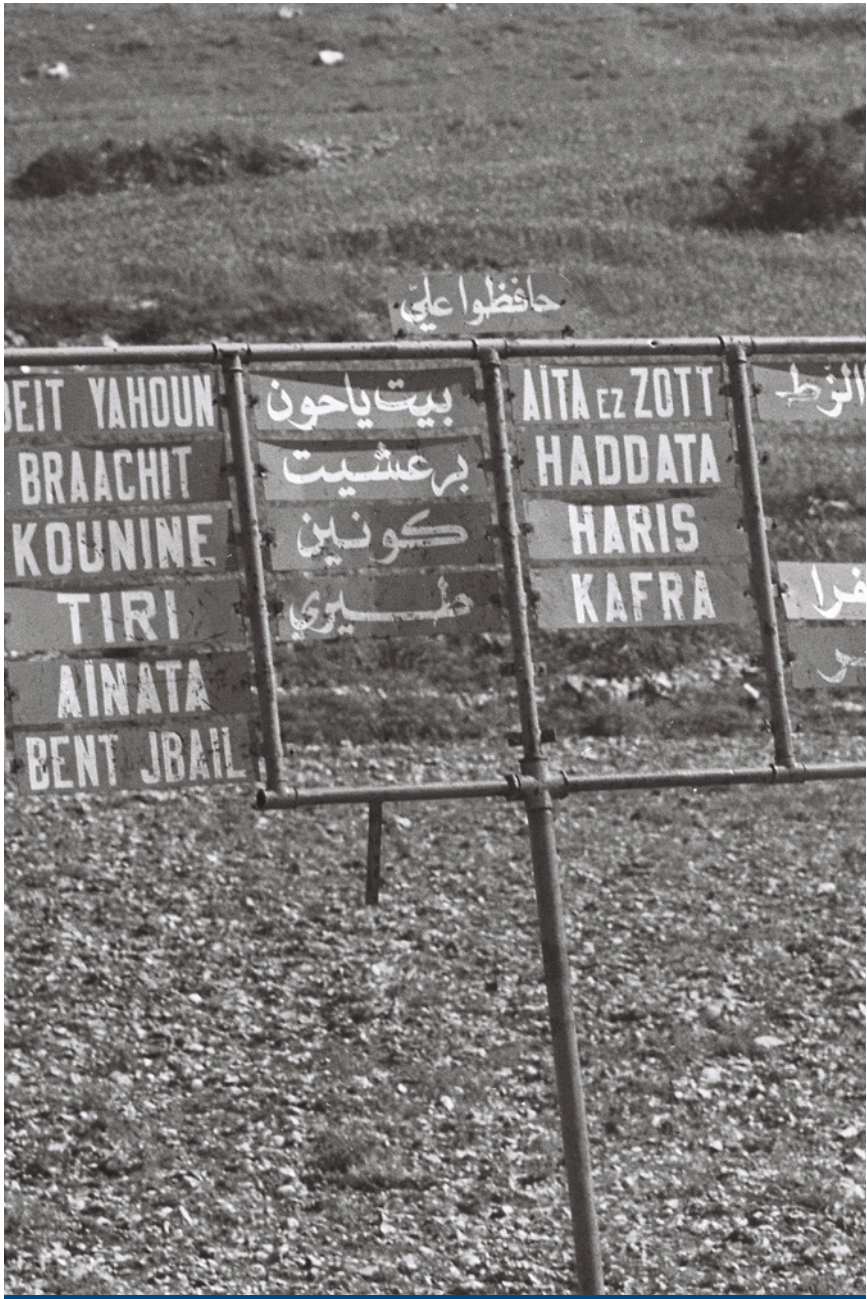 حافظوا علي
BEIT YAHOUN
BRAACHIT
KOUNINE
TIRI
AÏNATA
BENT JBAIL
بيت ياحون
برعشيت
كونين
طيري
AÏTA EZ ZOTT
HADDATA
HARIS
KAFRA
الزط